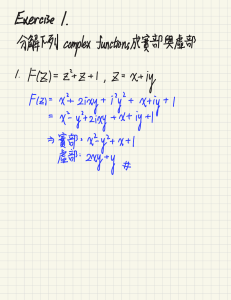 Exercise 1.
分解下列 complex functions 成實部與虛部
1. F(z) = z²+z+1 , z = x+iy
F(z) = x²+2ixy+i²y² + x+iy+1
= x²-y²+2ixy+x+iy+1
⇒ 實部: x²-y²+x+1
虛部: 2xy+y #